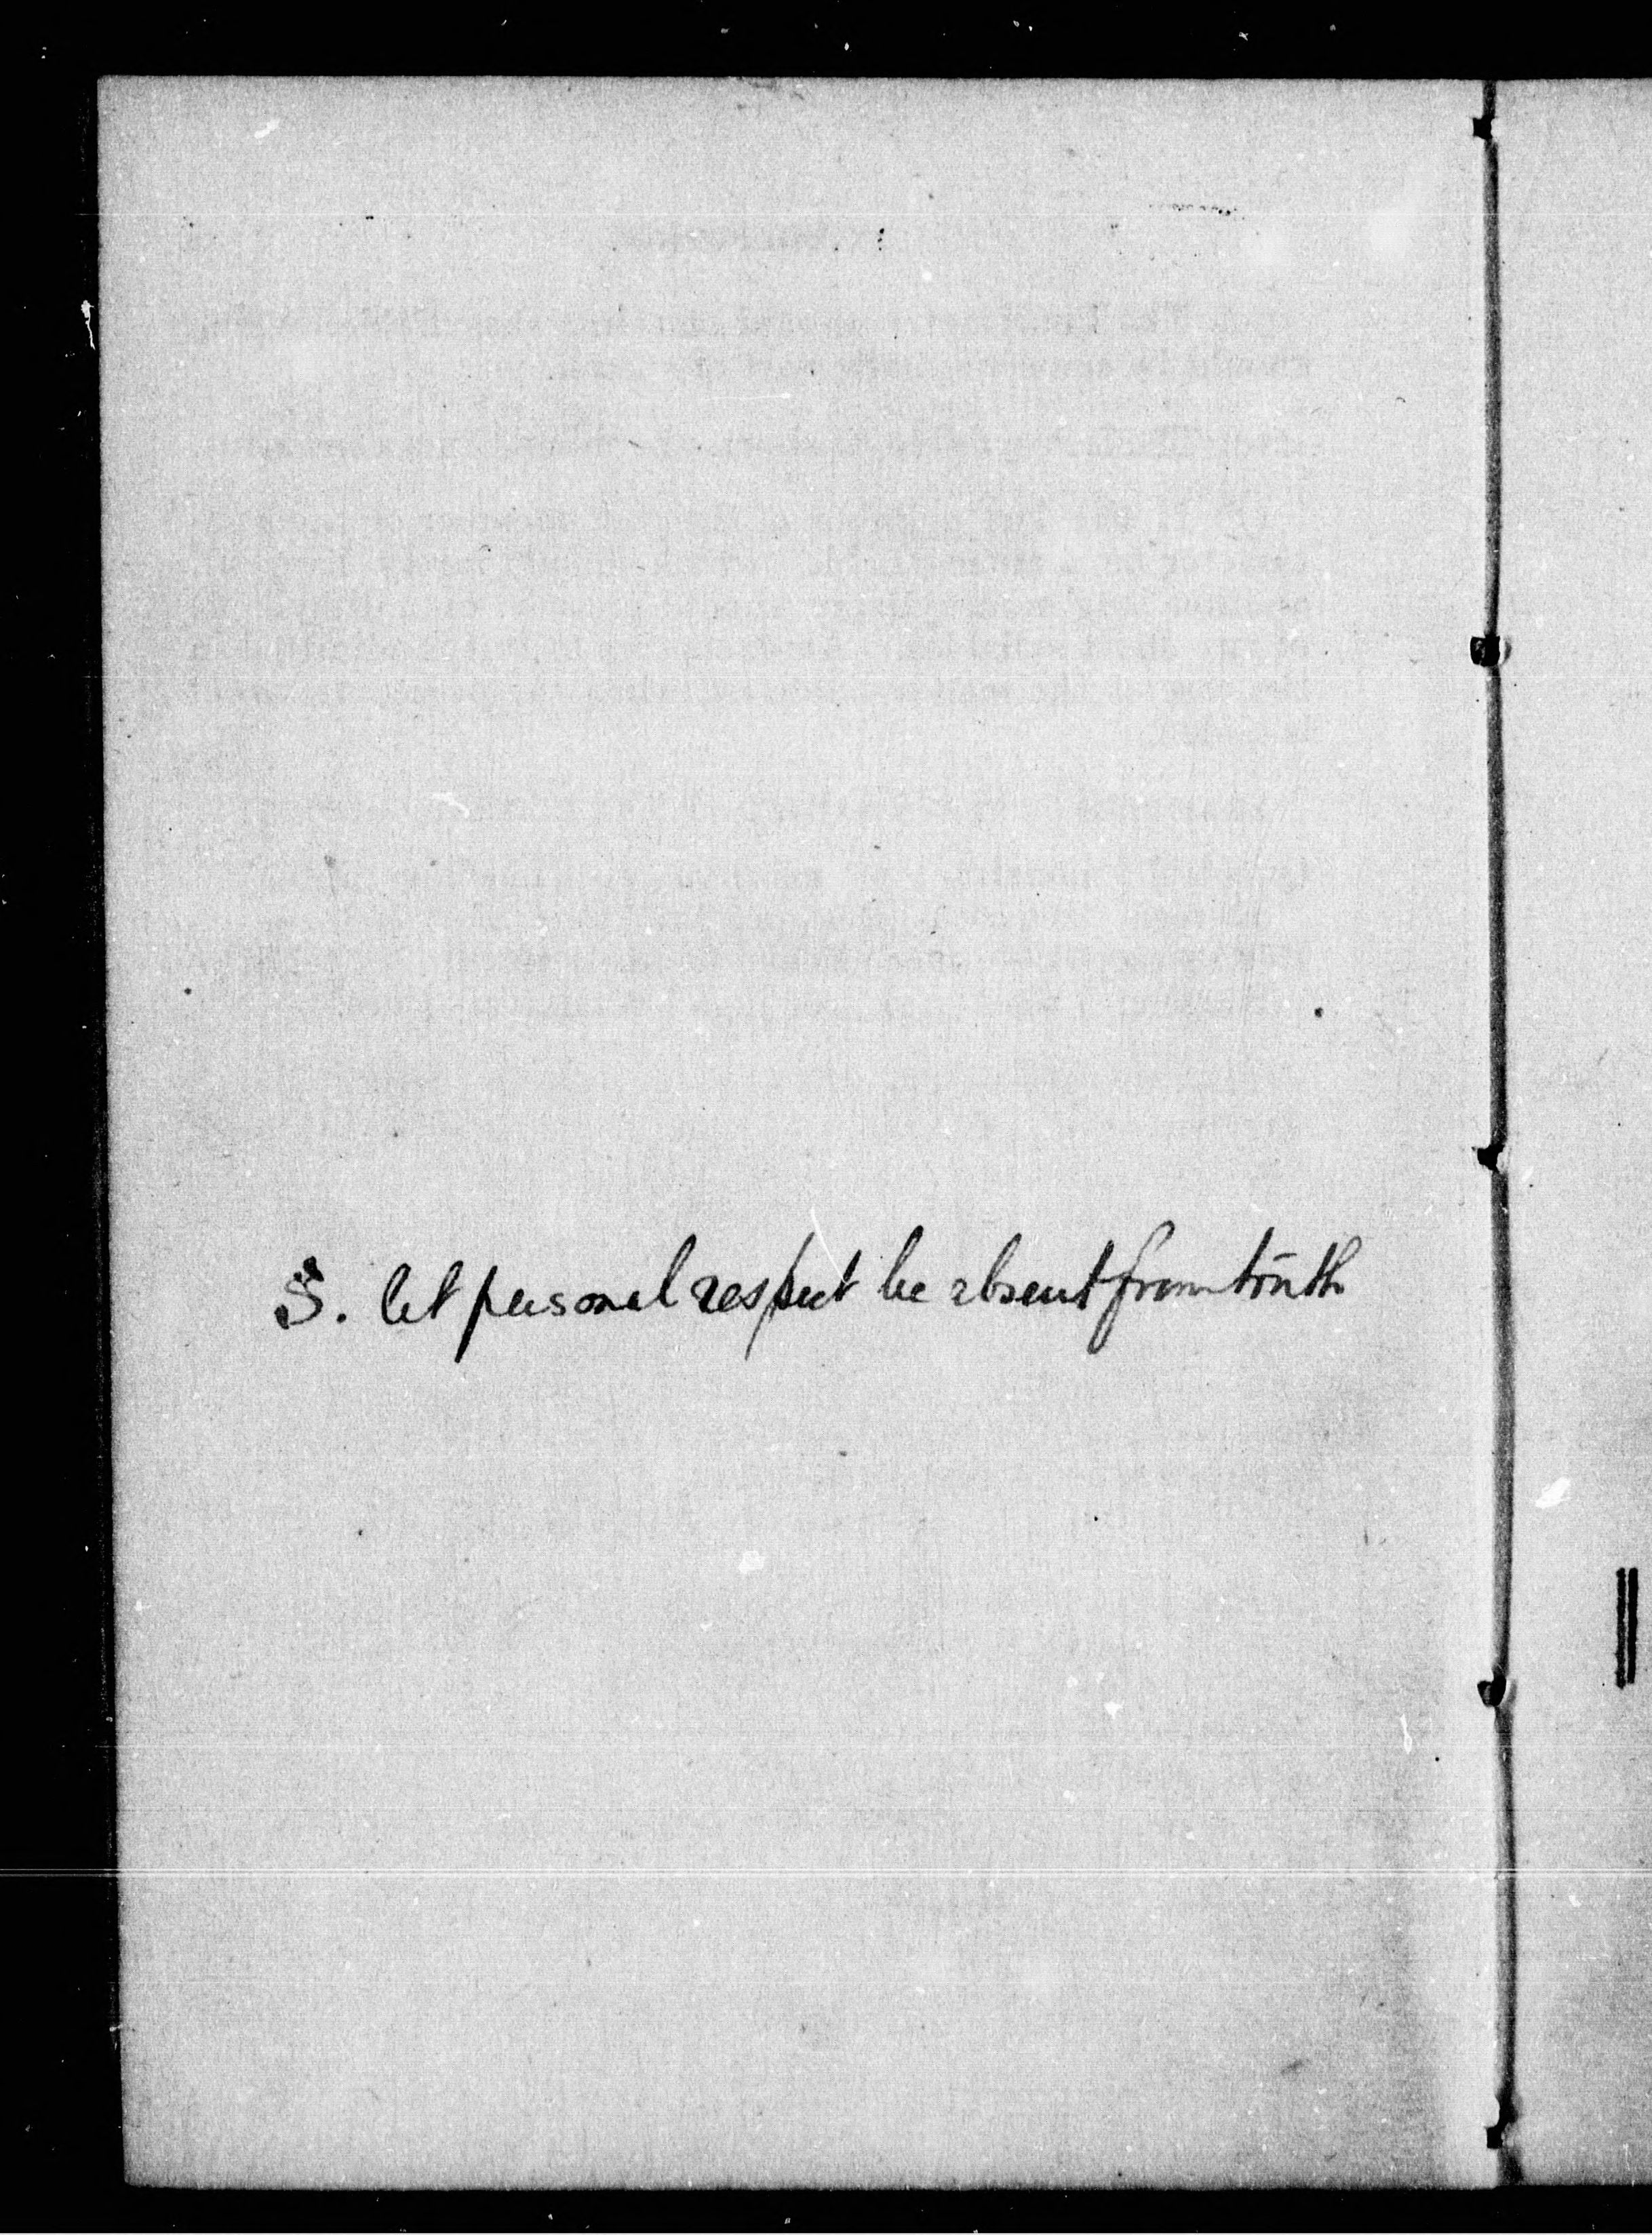 S. let personal respect be absent from truth